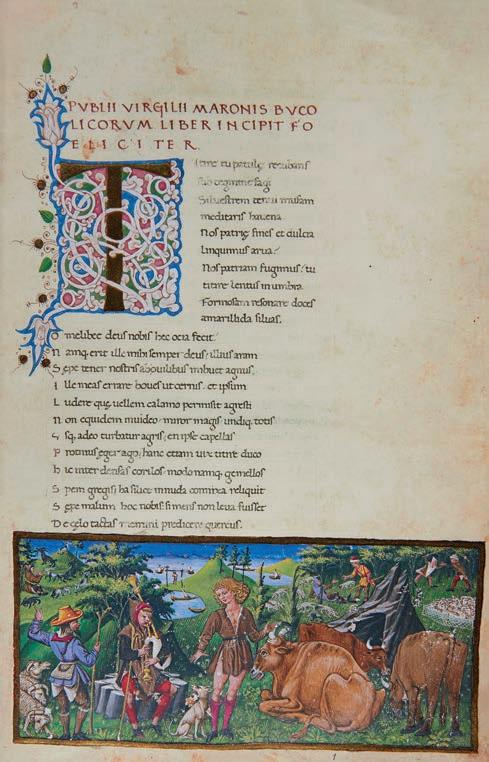 PVBLII VIRGILII MARONIS BVCO
LICORVM LIBER INCIPIT FO
ELICITER.
Titire tu patulę recubans
sub tegmine fagi
Siluestrem tenui musam
meditaris hauena
Nos patrię fines et dulcia
linquimus arua.
Nos patriam fugimus: tu
titire lentus in umbra.
Formosam resonare doces
amarillida siluas.
O melibee deus nobis hec ocia fecit.
N amq. erit ille mihi semper deus: illius aram
S ępe tener nostris ab ouilibus imbuet agnus.
I lle meas errare boues ut cernis. et ipsum
L udere que uellem calamo permisit agresti
N on equidem inuideo: miror magis undiq. totis
V sq. adeo turbatur agris: en ipse capellas
P rotinus eger ago: hanc etiam uix titire duco
H ic inter densas corilos: modo namq. gemellos
S pem gregis: ha silice in nuda connixa reliquit
S ępe malum hoc nobis: si mens non leua fuisset
D e celo tactas memini predicere quercus.